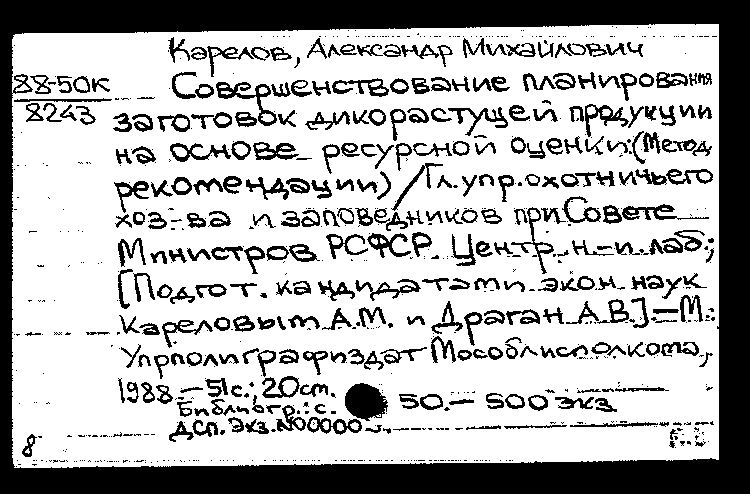 Карелов, Александр Михайлович
88-50К
8243
Совершенствование планирования
заготовок дикорастущей продукции
на основе ресурсной оценки: (Метод.
рекомендации) / Гл. упр. охотничьего
хоз-ва и заповедников при Совете
Министров РСФСР. Центр. н.-и. лаб.;
[Подгот. кандидатами экон. наук
Кареловым А.М. и Драган А.В.]. – М.:
Упрполиграфиздат Мособлисполкома,
1988. – 51 с.; 20 см.
Библиогр.: с. 50. – 500 экз.
ДСП. Экз. N00000
8